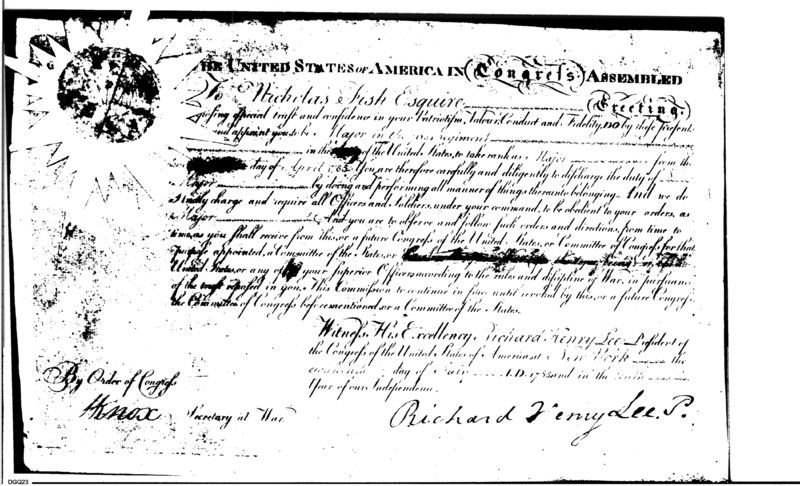 THE UNITED STATES OF AMERICA IN Congress ASSEMBLED
To Nicholas Fish Esquire Greeting,
special trust and confidence in your Patriotism, Valour, Conduct and Fidelity, DO by these presents
and appoint you to be a Major in the Regiment
in the of the United States, to take rank as Major from the
day of April 1785 You are therefore carefully and diligently to discharge the duty of
Major by doing and performing all manner of things thereunto belonging. And we do
strictly charge and require all Officers and Soldiers, under your command, to be obedient to your orders, as
Major And you are to observe and follow such orders and directions, from time to
time, as you shall receive from this, or a future Congress of the United States, or Committee of Congress for that
purpose appointed, a Committee of the States, or
United States, or any of your superior Officers according to the rules and discipline of War, in pursuance
of the trust reposed in you. This Commission to continue in force until revoked by this, or a future Congress
the Committee of Congress before mentioned, or a Committee of the States.
Witness, His Excellency, Richard Henry Lee President of
the Congress of the United States of America at New York the
day of A.D. 1785 and in the
Year of our Independence
By Order of Congress
HKnox Secretary at War.
Richard Henry Lee. P.
DGQ23